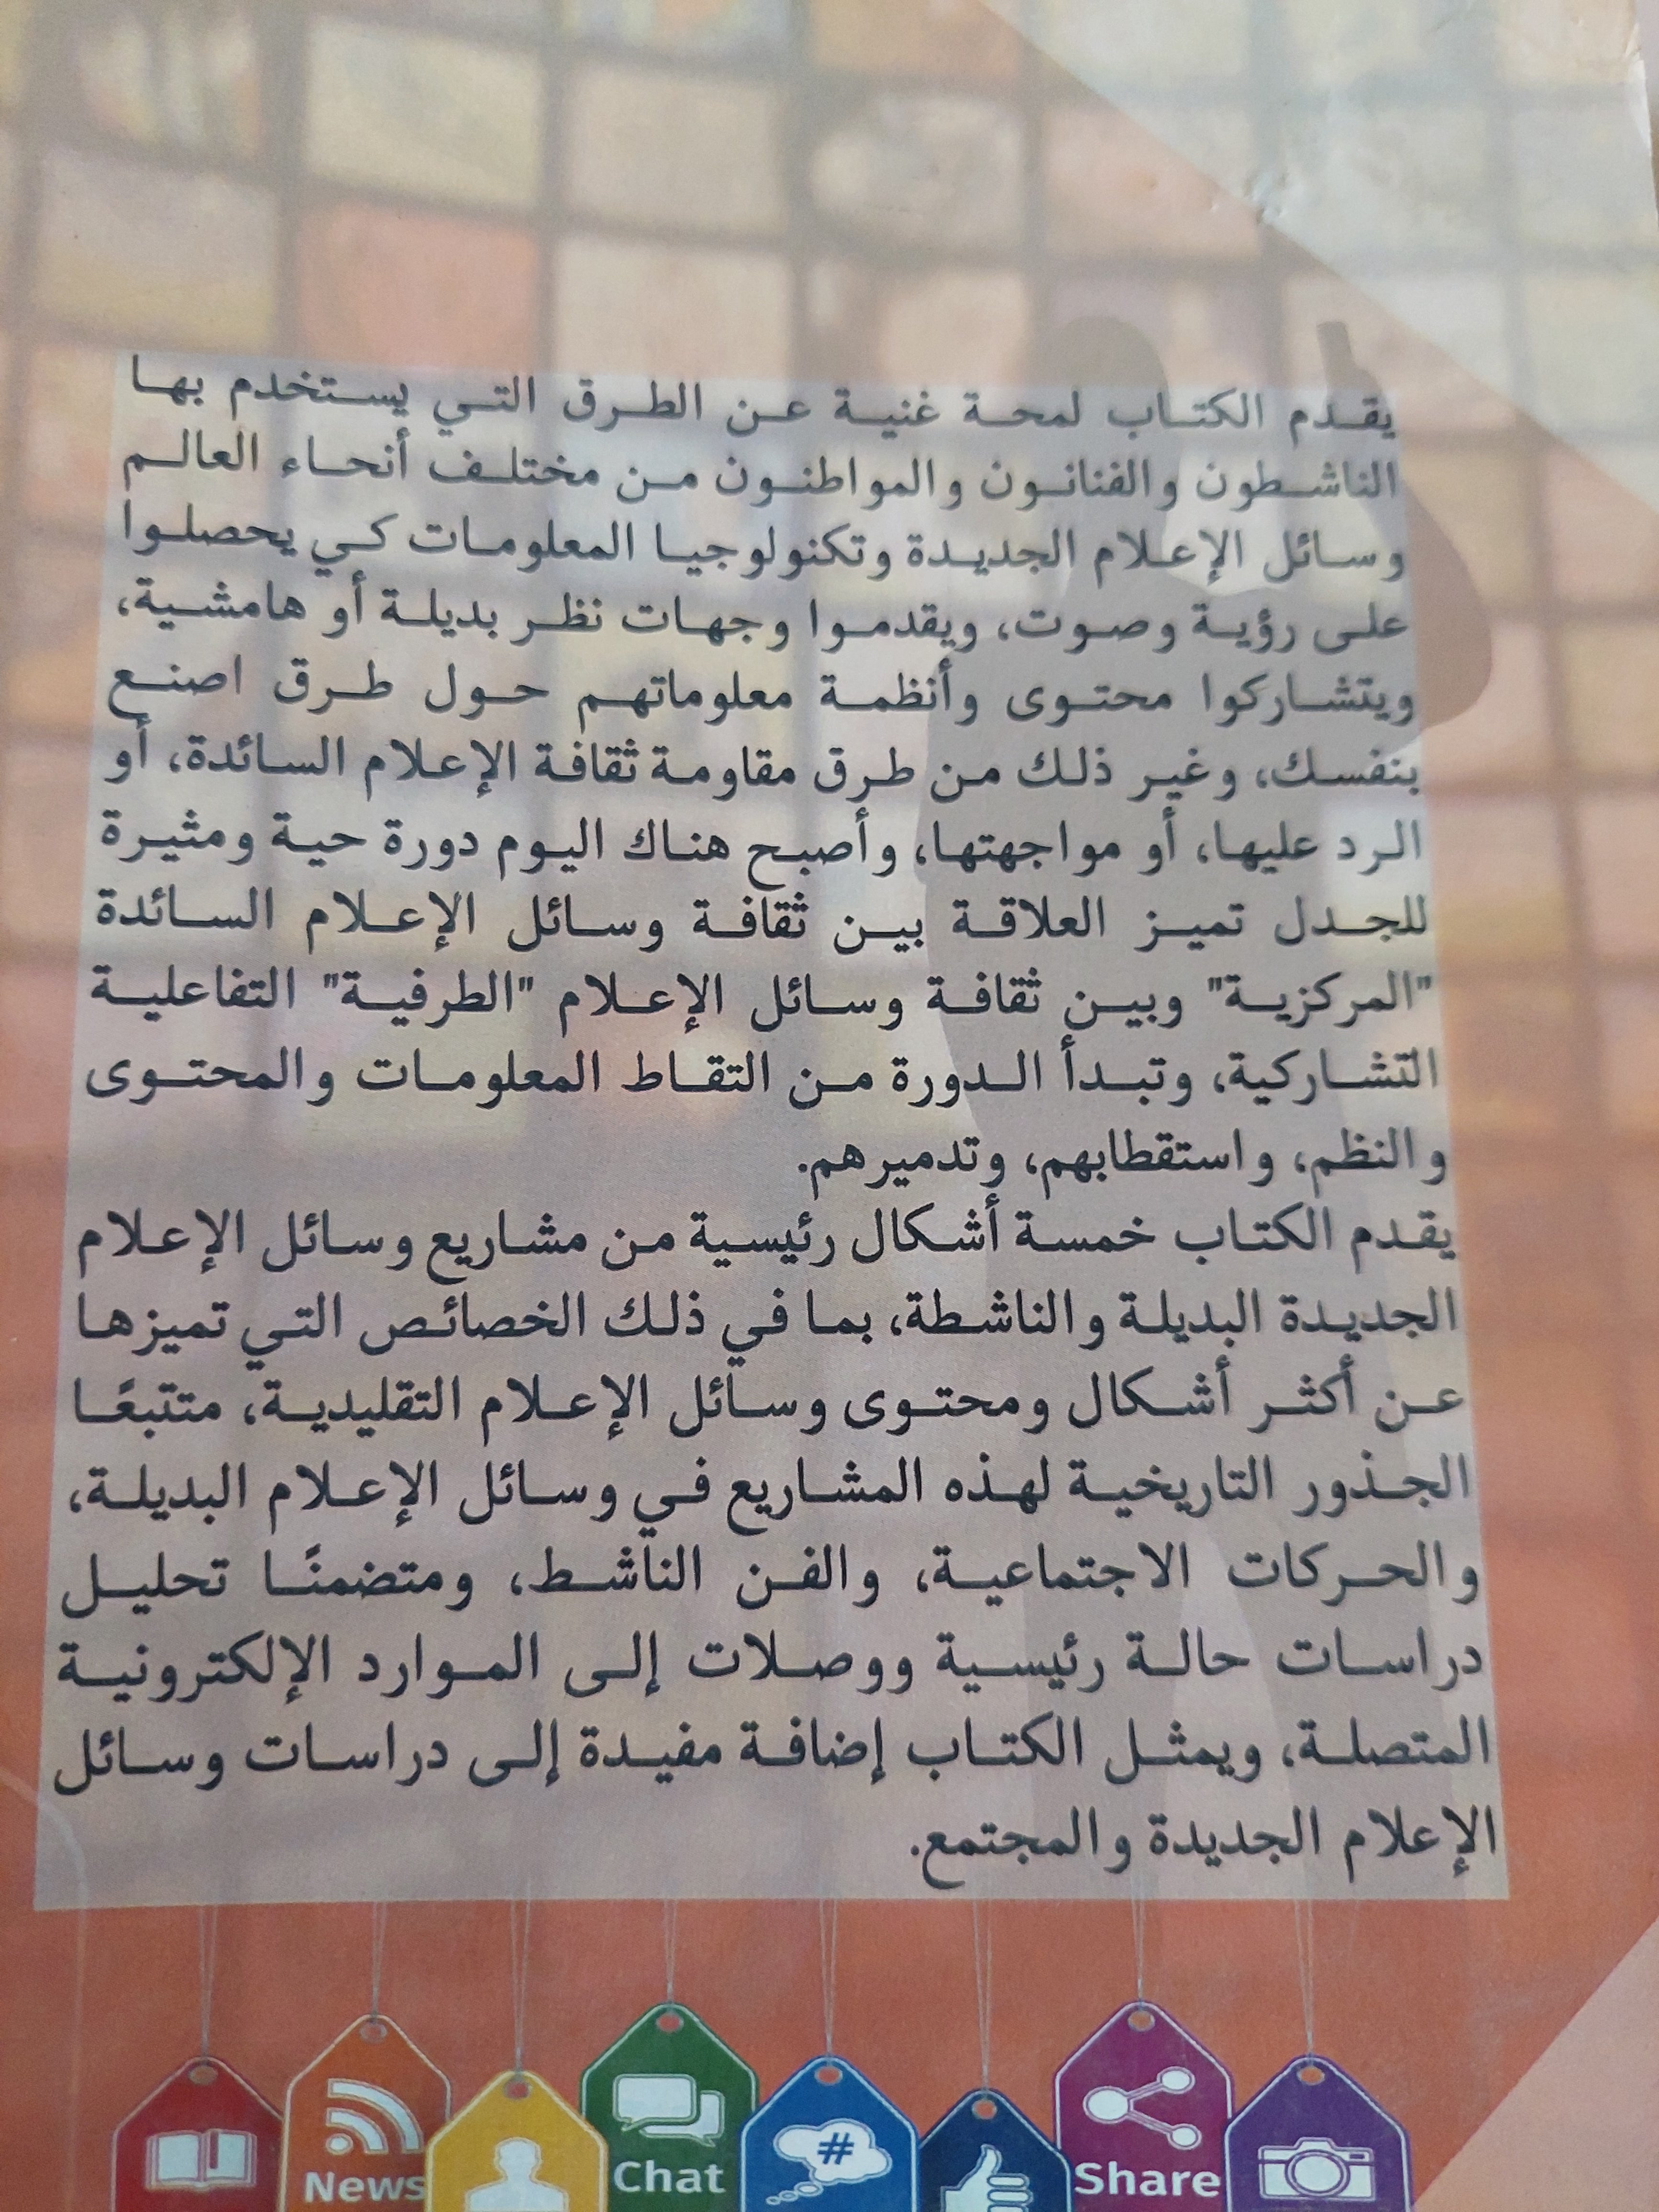 يقدم الكتاب لمحة غنية عن الطرق التي يستخدم بها
الناشطون والفنانون والمواطنون من مختلف أنحاء العالم
وسائل الإعلام الجديدة وتكنولوجيا المعلومات كي يحصلوا
على رؤية وصوت، ويقدموا وجهات نظر بديلة أو هامشية،
ويتشاركوا محتوى وأنظمة معلوماتهم حول طرق اصنع
بنفسك، وغير ذلك من طرق مقاومة ثقافة الإعلام السائدة، أو
الرد عليها، أو مواجهتها، وأصبح هناك اليوم دورة حية ومثيرة
للجدل تميز العلاقة بين ثقافة وسائل الإعلام السائدة
"المركزية" وبين ثقافة وسائل الإعلام "الطرفية" التفاعلية
التشاركية، وتبدأ الدورة من التقاط المعلومات والمحتوى
والنظم، واستقطابهم، وتدميرهم.
يقدم الكتاب خمسة أشكال رئيسية من مشاريع وسائل الإعلام
الجديدة البديلة والناشطة، بما في ذلك الخصائص التي تميزها
عن أكثر أشكال ومحتوى وسائل الإعلام التقليدية، متتبعًا
الجذور التاريخية لهذه المشاريع في وسائل الإعلام البديلة،
والحركات الاجتماعية، والفن الناشط، ومتضمنًا تحليل
دراسات حالة رئيسية ووصلات إلى الموارد الإلكترونية
المتصلة، ويمثل الكتاب إضافة مفيدة إلى دراسات وسائل
الإعلام الجديدة والمجتمع.
News
Chat
#
Share